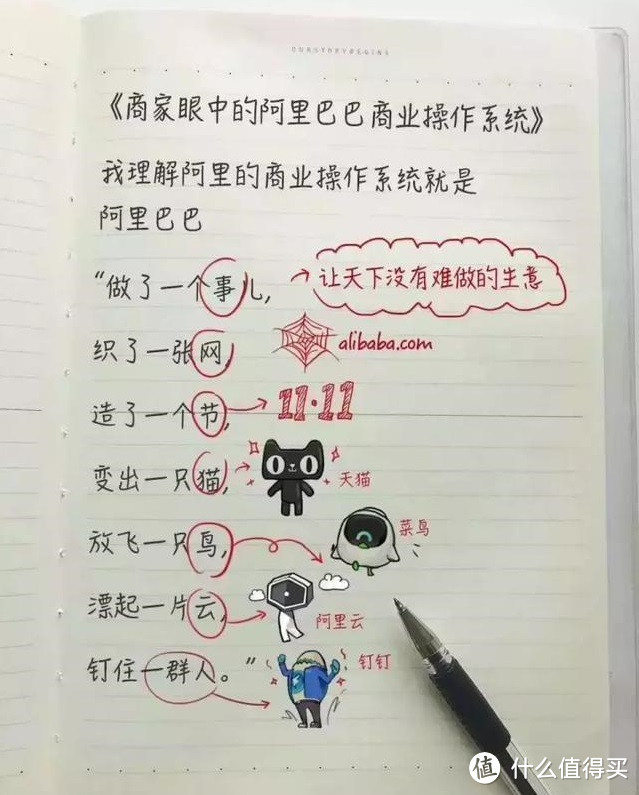 《商家眼中的阿里巴巴商业操作系统》
我理解阿里的商业操作系统就是
阿里巴巴
“做了一个事儿,
让天下没有难做的生意
织了一张网,
alibaba.com
造了一个节,
11·11
变出一只猫,
天猫
放飞一只鸟,
菜鸟
漂起一片云,
阿里云
钉住一群人。”
钉钉
值 什么值得买